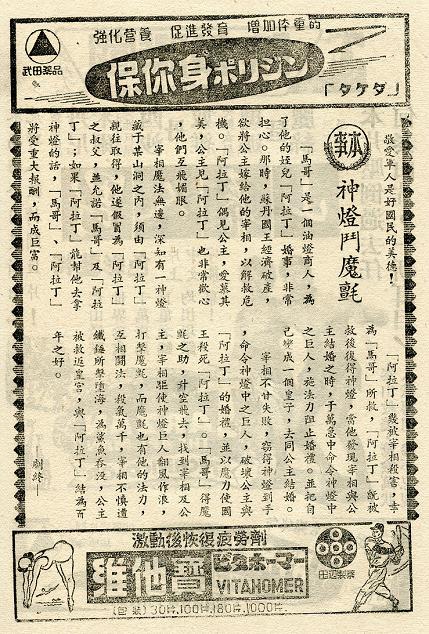 強化營養 促進發育 增加体重的
武田藥品
保你身ポリジン
「タケダ」
敬愛軍人是好國民的美德!
本事
神燈鬥魔氈
「馬哥」是一個油燈商人,為
了他的姪兒「阿拉丁」婚事,非常
担心。那時,蘇丹國王經濟破產,
欲將公主嫁給他的宰相,以解救危
機。「阿拉丁」偶見公主,愛慕其
美,公主見「阿拉丁」也非常歡心
,他們互飛媚眼。
宰相魔法無邊,深知有一神燈
藏于某山洞之內,須由「阿拉丁」
親往取得,他遂假冒為「阿拉丁」
之叔父,並允諾「馬哥」及「阿拉
丁」;如果「阿拉丁」能幫他去拿
神燈的話,「馬哥」、「阿拉丁」
將受重大報酬,而成巨富。
「阿拉丁」幾被宰相殺害,幸
為「馬哥」所救,「阿拉丁」既被
救後復得神燈,當他發現宰相與公
主結婚之時,于萬急中命令神燈中
之巨人,施法力阻止婚禮。並把自
己變成一個皇子,去同公主結婚。
宰相不甘失敗,竊得神燈到手
,命令神燈中之巨人,破壞公主與
「阿拉丁」的婚禮,並以魔力使國
王殺死「阿拉丁」。「馬哥」得魔
氈之助,升空飛去,找到宰相及公
主,宰相驅使神燈巨人翻風作浪,
打擊魔氈,而魔氈也有他的法力,
互相鬥法,殺氣萬千,宰相不慎遭
鐵錘所擊墮海,為鯊魚吞沒,公主
被救返皇宮,與「阿拉丁」結為百
年之好。
—劇終—
激動後恢復疲勞劑
維他寶
ビタホーマー
VITAHOMER
田辺製薬
(包裝) 30片, 100片, 180片, 1000片.